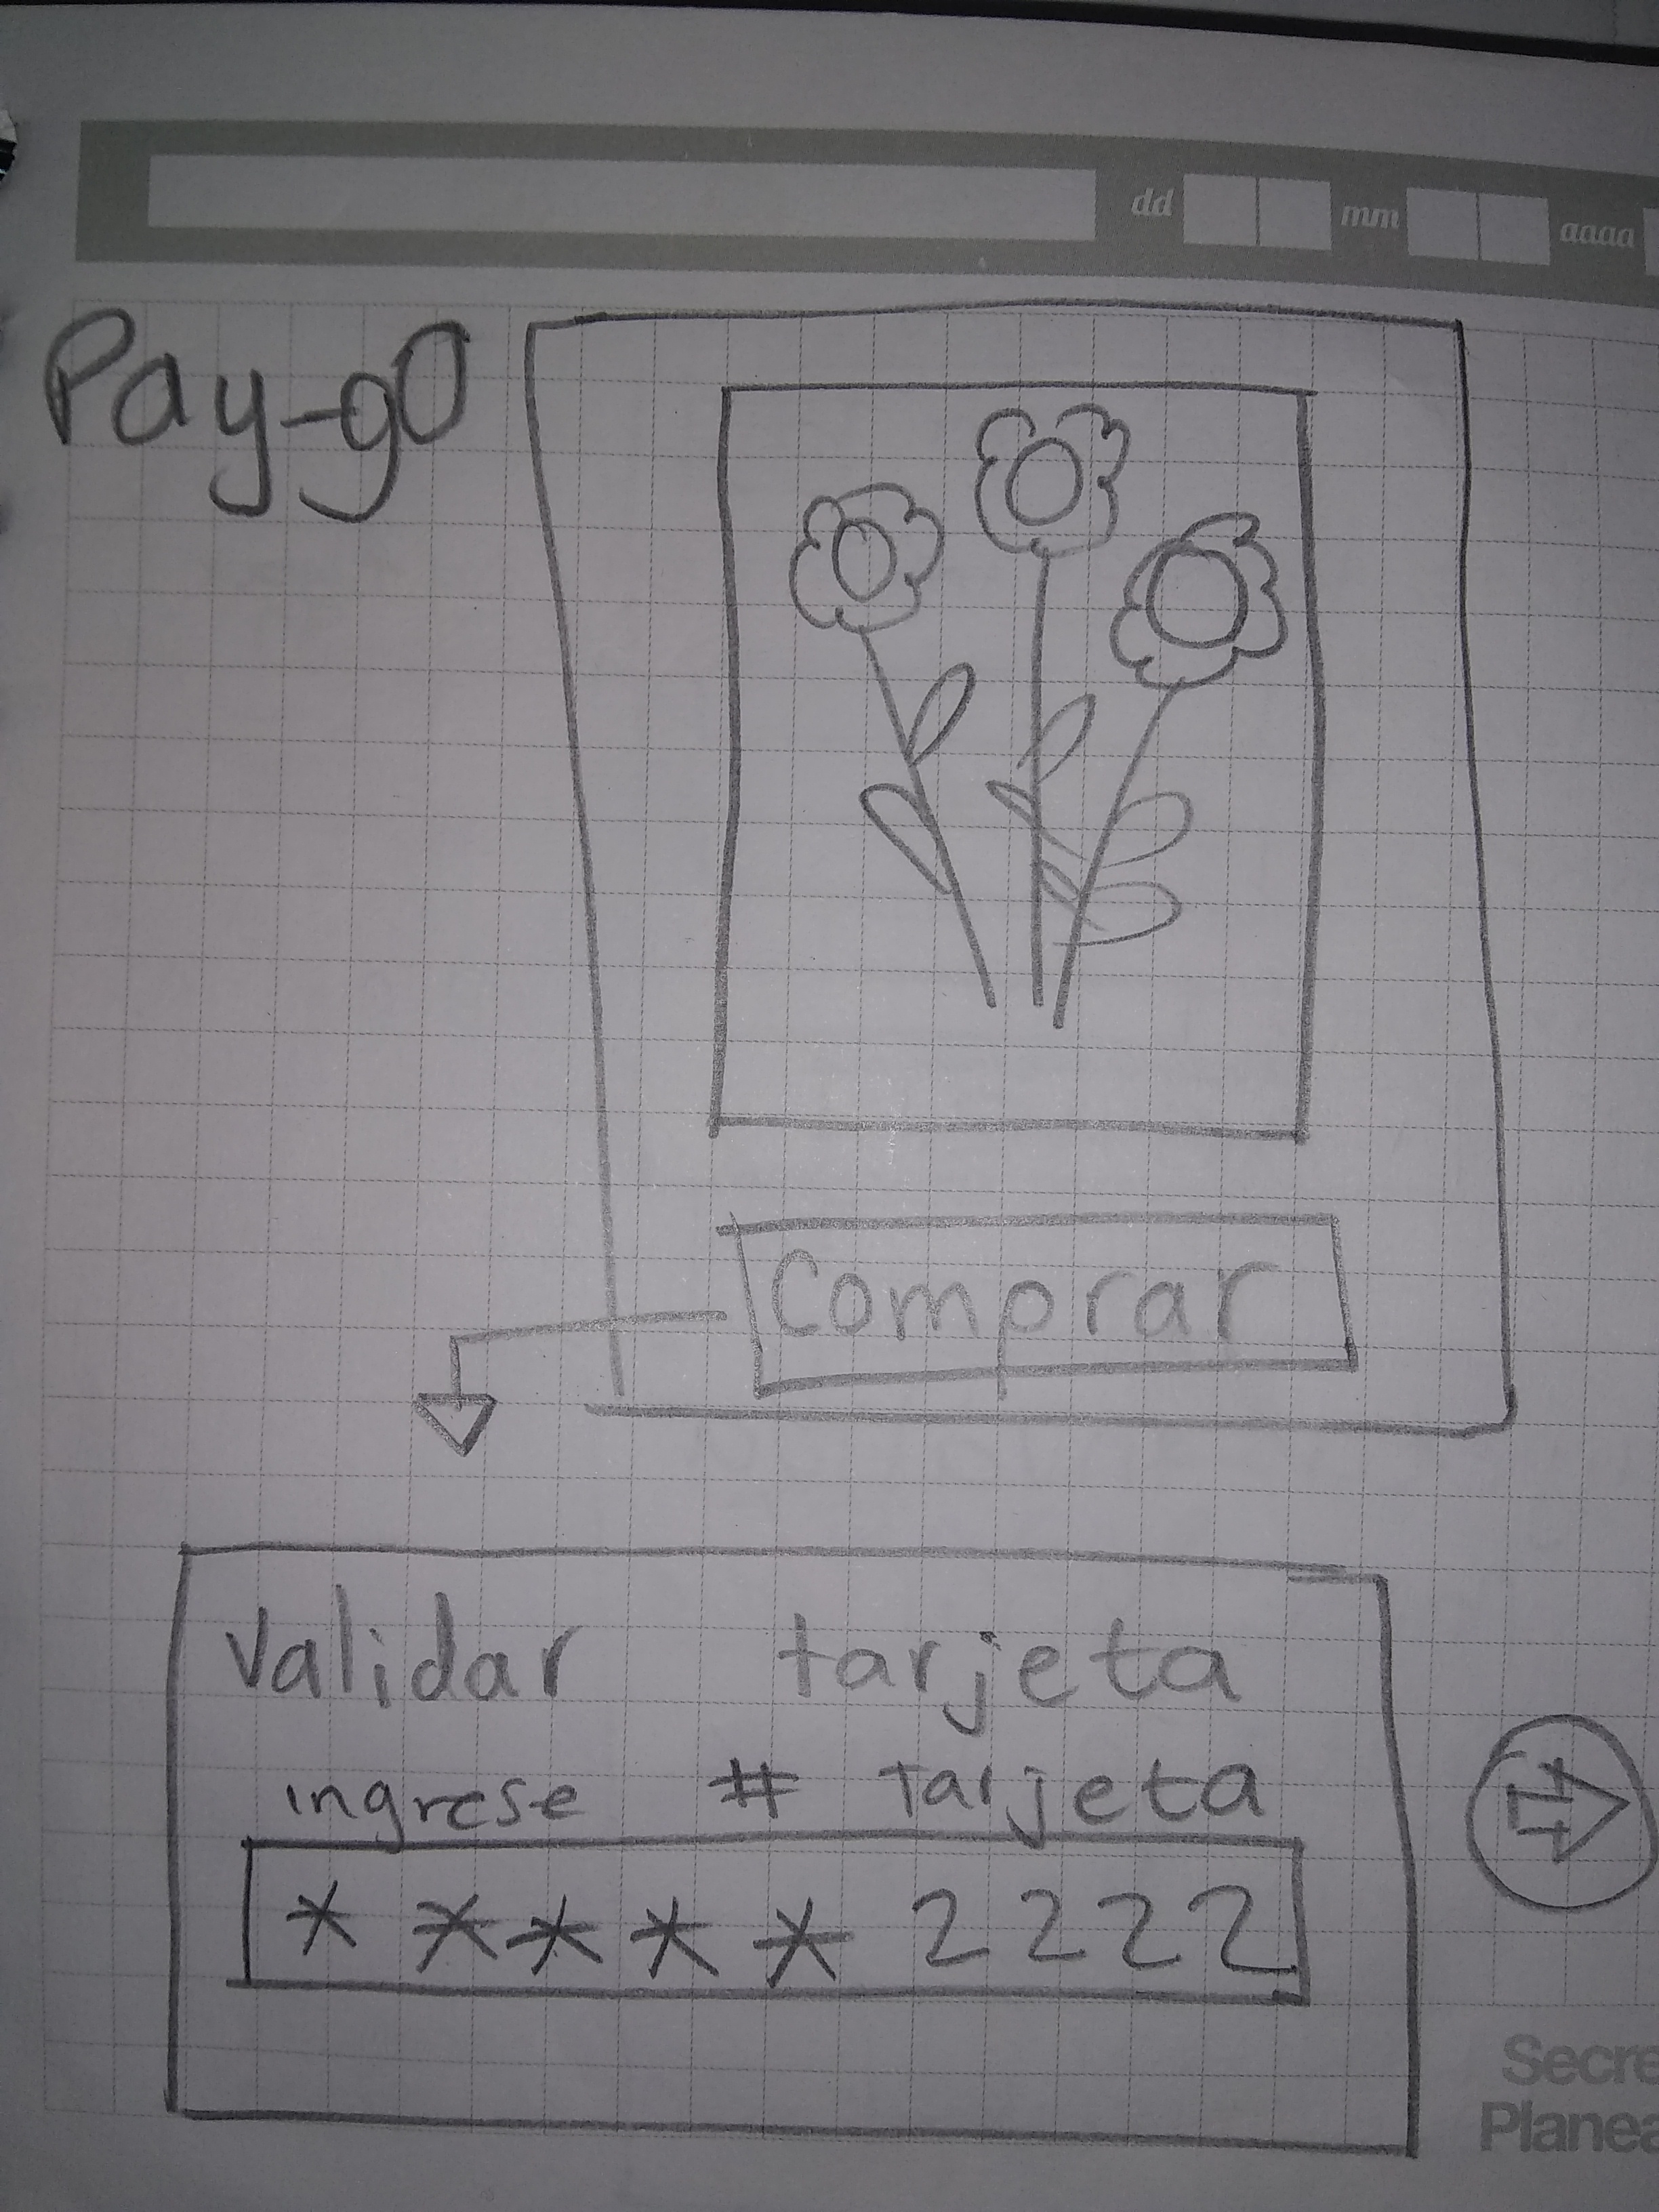 dd mm aaaa
Pay-go
Comprar
Validar tarjeta
ingrese # Tarjeta
* * * * * 2222
Secre
Planea